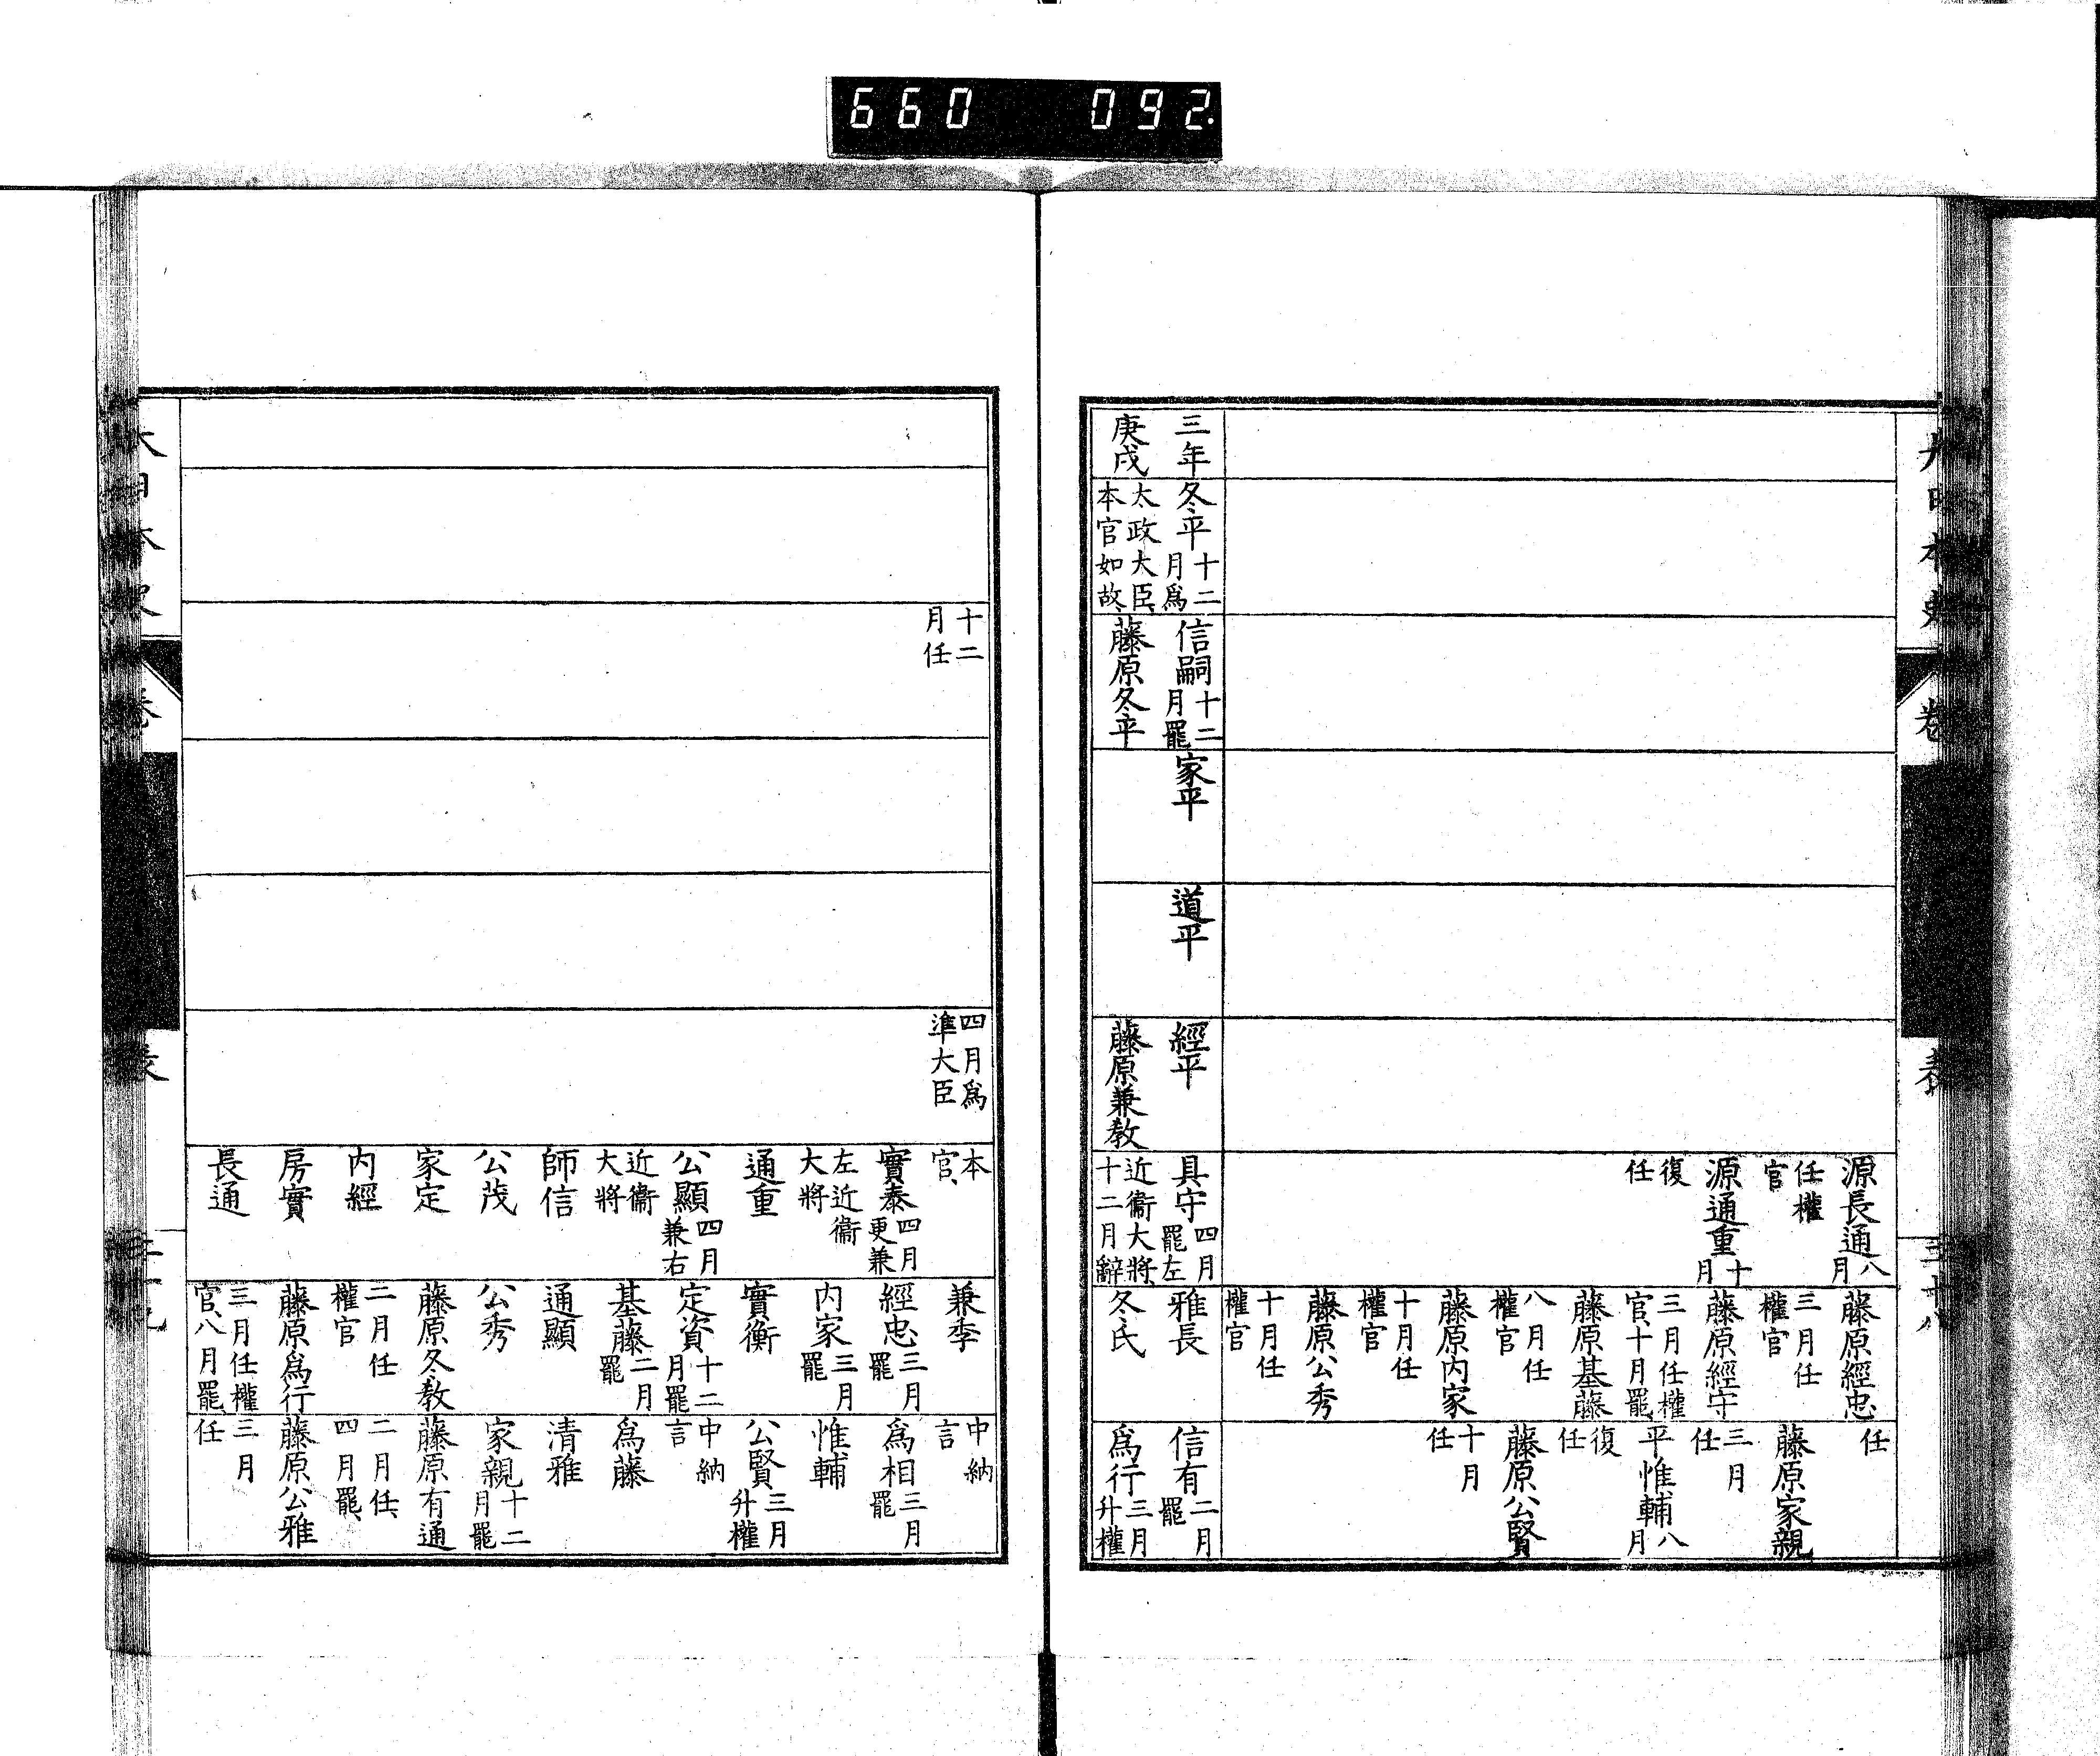 660 092.
源長通八月
任權官
源通重十月
復任
藤原經忠
三月任權官
藤原經守
三月任權官、十月罷、
藤原基藤
八月任權官
藤原内家
十月任權官
藤原公秀
十月任權官
任
藤原家親
三月任
平惟輔八月
復任
藤原公賢
十月任
三年
庚戌
冬平十二月爲
太政大臣、本官如故、
信嗣十二月罷、
藤原冬平
家平
道平
經平
藤原兼教
具守四月罷左
近衞大將、十二月辭
雅長
冬氏
信有二月罷
爲行三月升權
十二月任
四月爲準大臣
本官、
實泰四月更兼
左近衞大將
通重
公顯四月兼右
近衞大將
師信
公茂
家定
内經
房實
長通
兼季
經忠三月罷
内家三月罷
實衡
定資十二月罷
基藤二月罷
通顯
公秀
藤原冬教
二月任權官
藤原爲行
三月任權官、八月罷、
中納言
爲相三月罷
惟輔
公賢三月升權
中納言
爲藤
清雅
家親十二月罷
藤原有通
二月任、四月罷、
藤原公雅
三月任